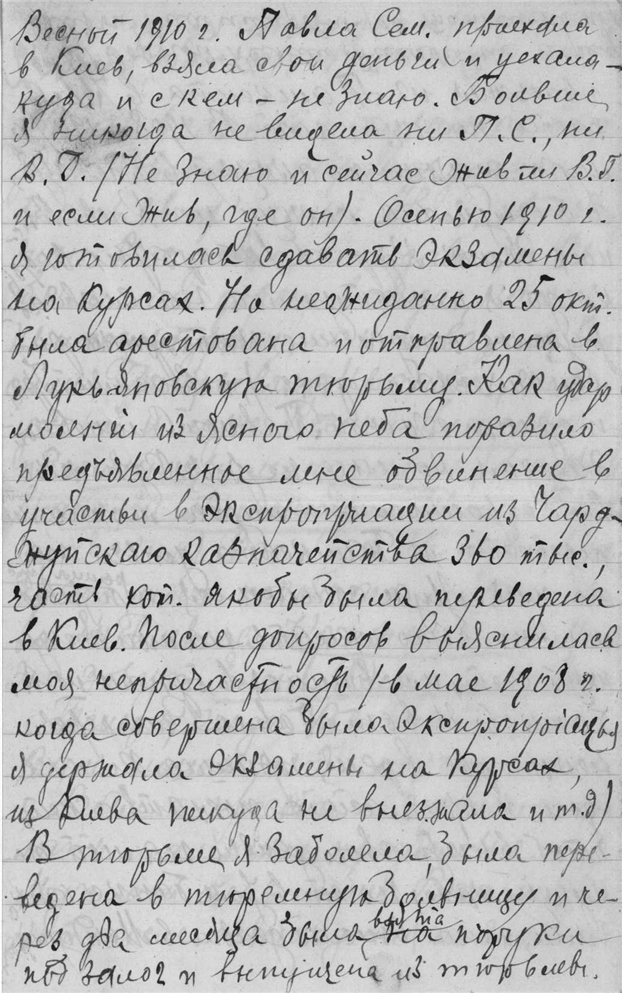 Весной 1910 г. Павла Сем. приехала
в Киев, взяла свои деньги и уехала –
куда и с кем – не знаю. Больше
я никогда не видела ни П.С., ни
В.Г. (Не знаю и сейчас жив ли В.Г.
и если жив, где он). Осенью 1910 г.
я готовилась сдавать экзамены
на Курсах. Но неожиданно 25 окт.
была арестована и отправлена в
Лукьяновскую тюрьму. Как удар
молнии из ясного неба поразило
предъявленное мне обвинение в
участьи в экспроприации из Чард-
жуйскаго казначейства 360 тыс.,
часть кот. якобы была переведена
в Киев. После допросов выяснилась
моя непричастность (в мае 1908 г.
когда совершена была экспропріація
я держала экзамены на Курсах,
из Киева никуда не выезжала и т.д)
В тюрьме я заболела, была пере-
ведена в тюремную больницу и че-
рез два месяца была взята на поруки
под залог и выпущена из тюрьмы.